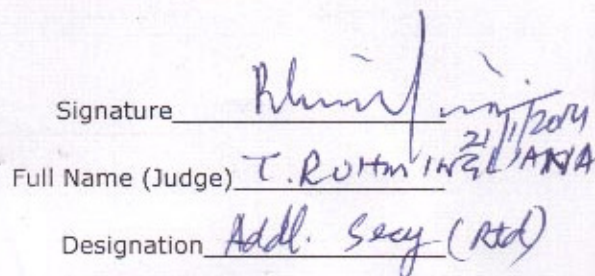 Signature
21/1/2014
Full Name (Judge) T. ROHMINGLIANA
Designation Addl. Secy (Rtd)